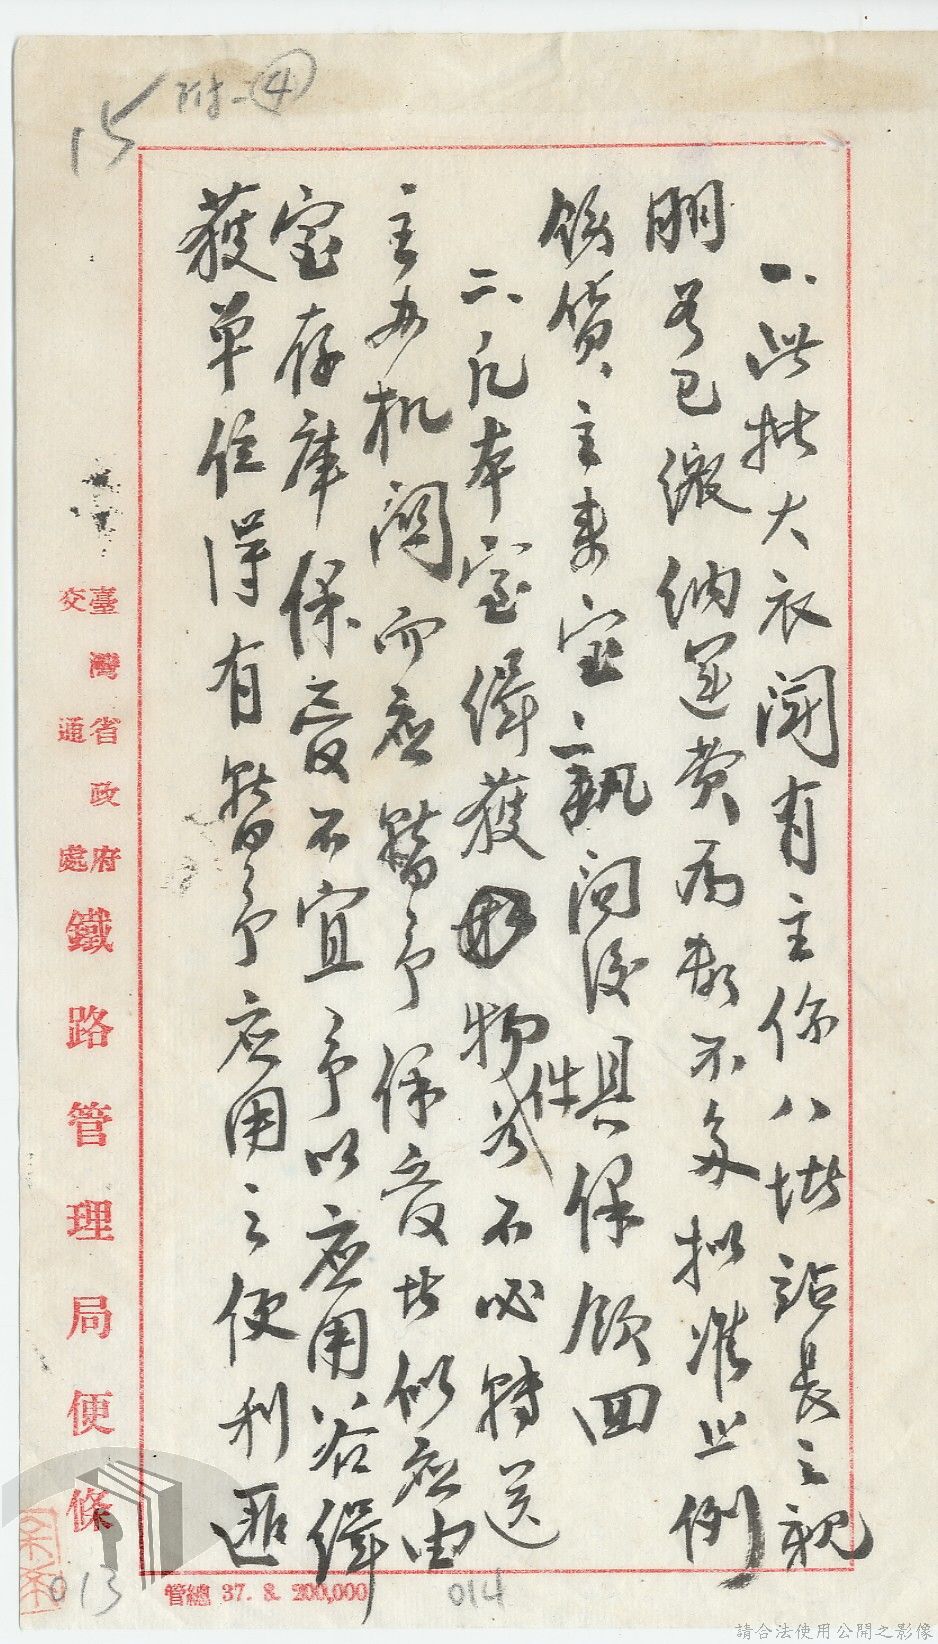 15 附二④
一、此批大衣聞有主係八堵站長之親
朋若已繳納運費為數不多拟准例
飭貨主来室一訊问後具保領回
二、凡本室緝獲物件若不必轉送
主办机關而应暫予保管者似应由
室存庫保管不宜予以应用若緝
獲單位得有暫予应用之便利匪
臺灣省政府交通處鐵路管理局便條
管總 37. 8. 200,000
013
014
請合法使用公開之影像